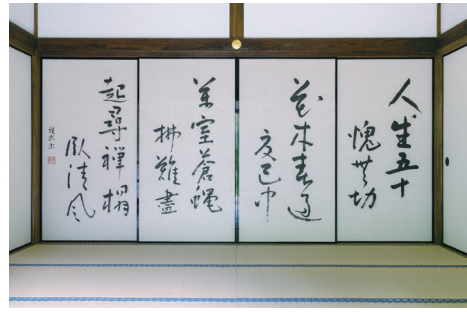 人生五十
愧無功
花木春過
夏已中
萬室蒼蝿
拂難盡
起尋禅榻
臥清風